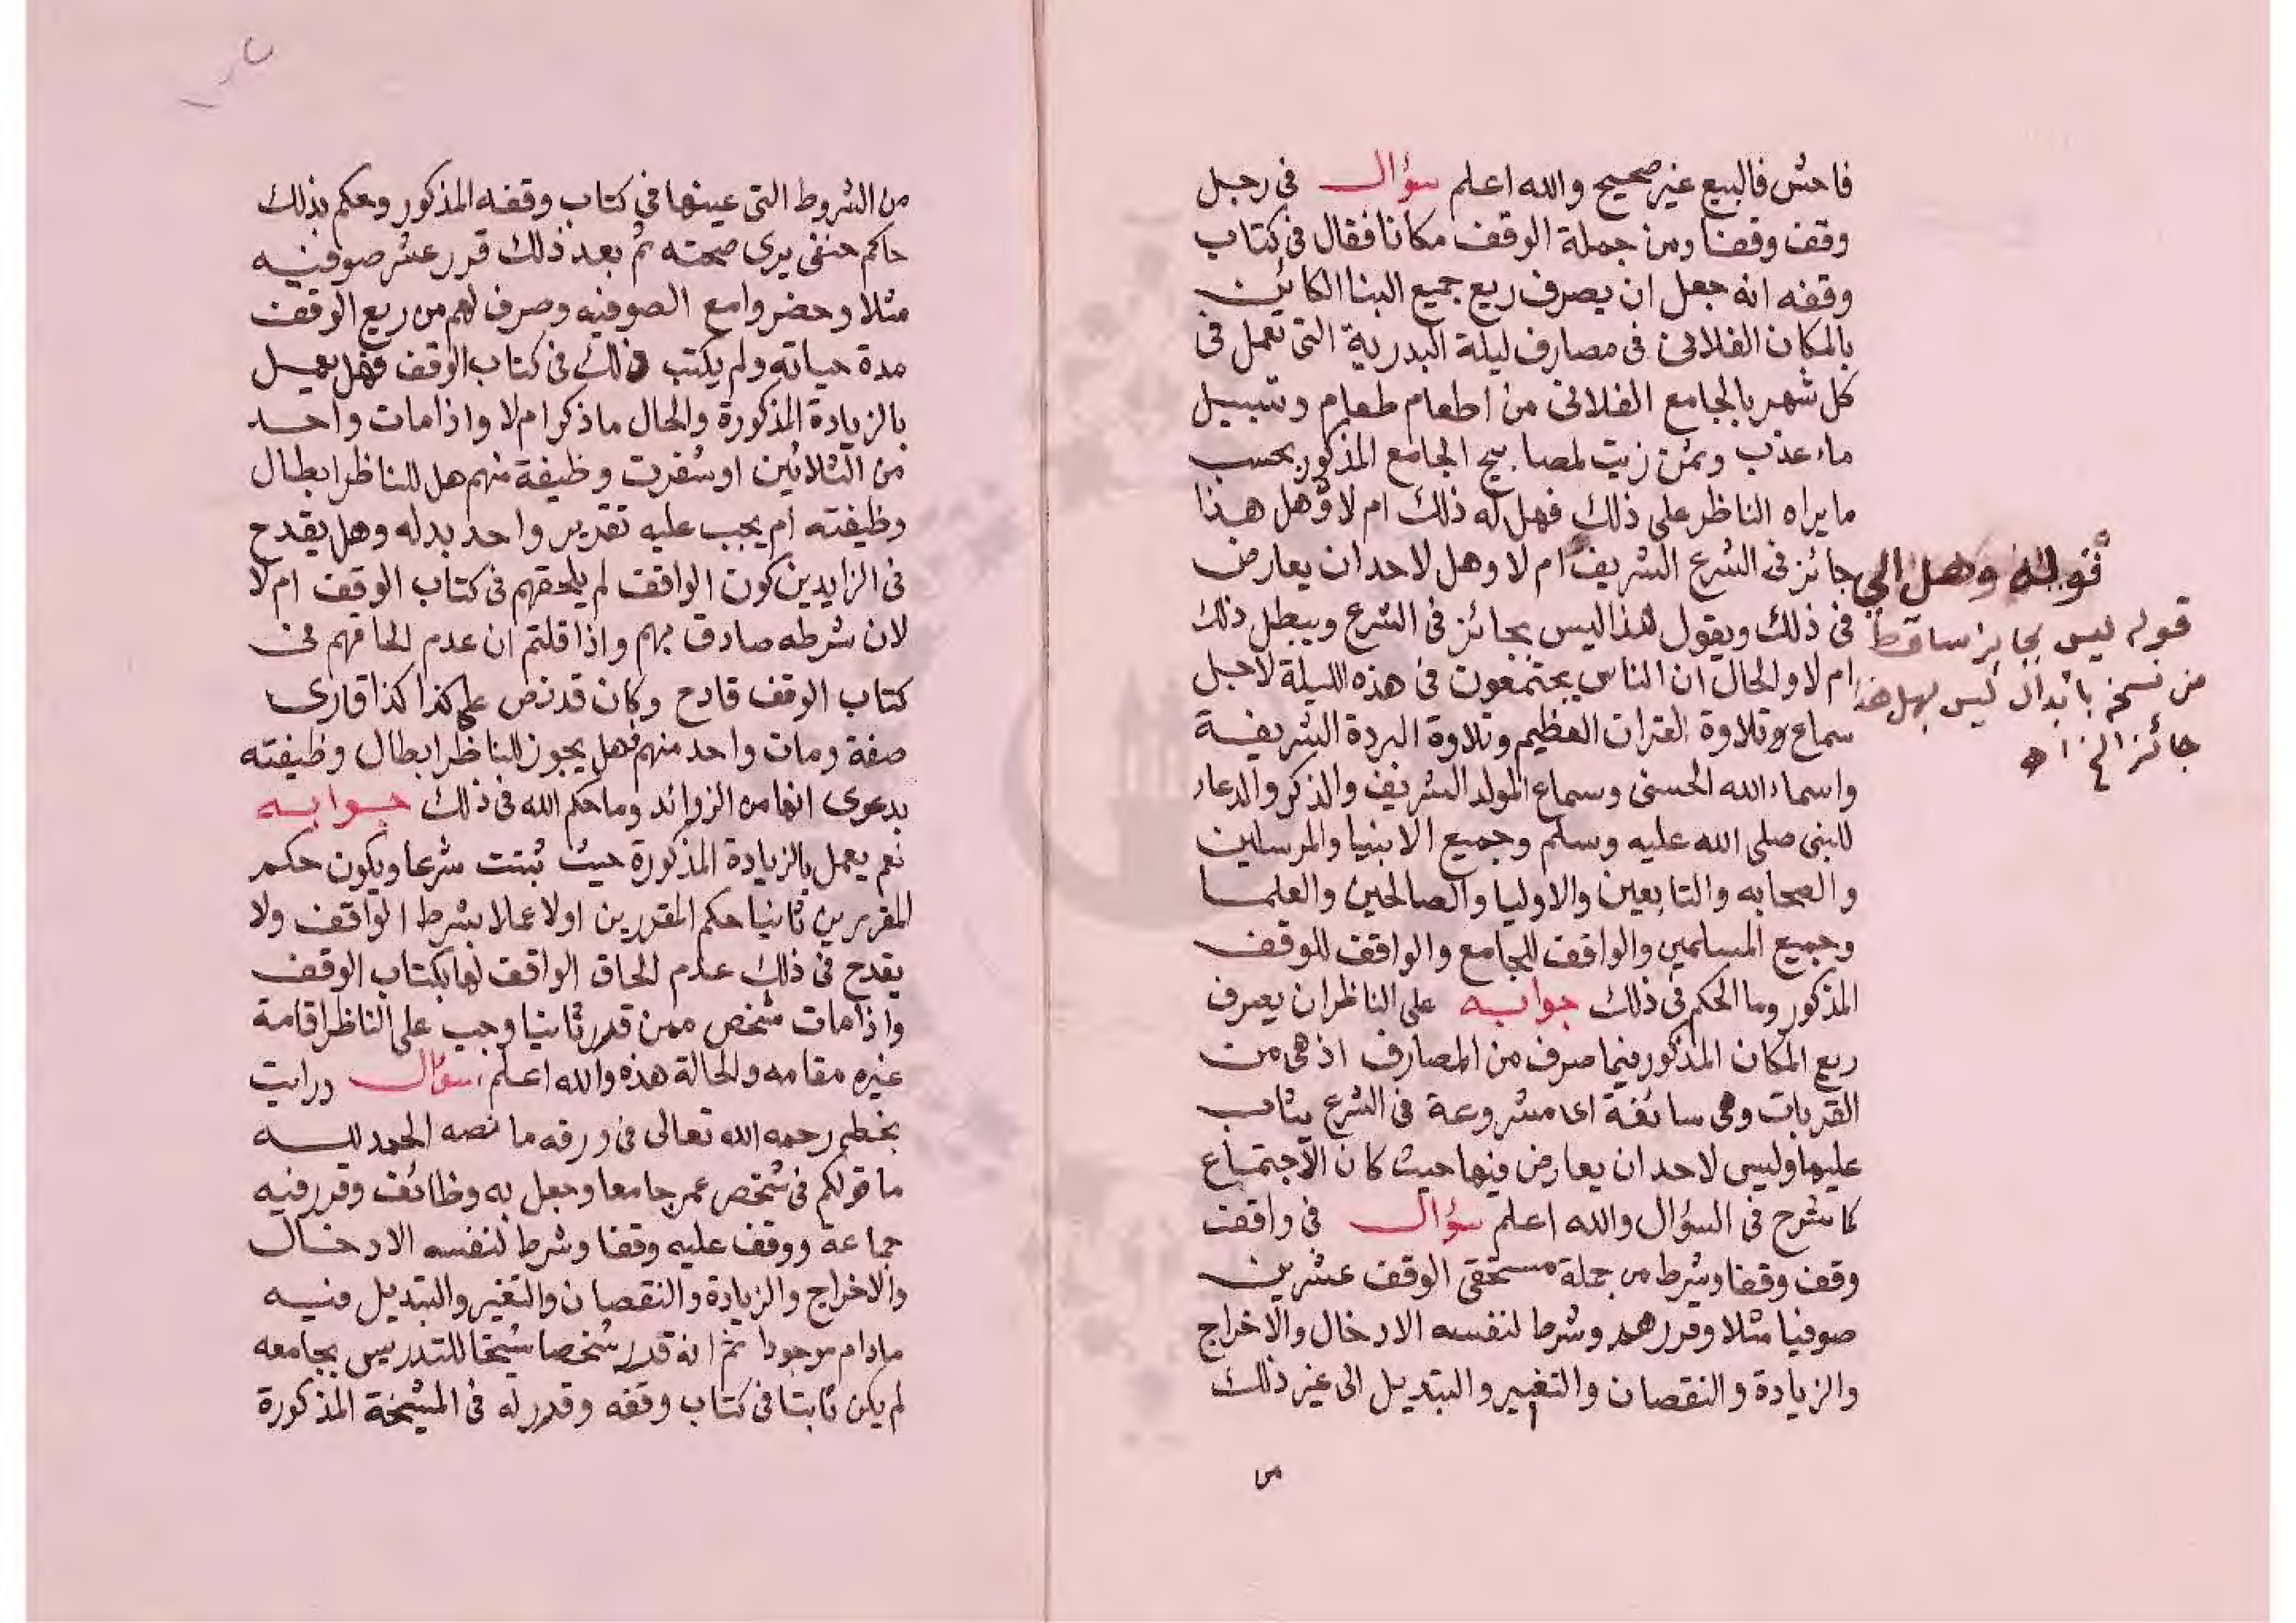 فاحش فالبيع غير صحيح والله اعلم سؤال في رجل
وقف وقفا ومن جملة الوقف مكانا فقال في كتاب
وقفه انه جعل ان يصرف ريع جميع البنا الكائن
بالمكان الفلاني في مصارف ليلة البدرية التي تعمل في
كل شهر بالجامع الفلاني من اطعام طعام وتسبيل
ماء عذب وثمن زيت لمصابيح الجامع المذكور بحسب
ما يراه الناظر على ذلك فهل له ذلك ام لا وهل هذا
جائز في الشرع الشريف ام لا وهل لاحد ان يعارض
في ذلك ويقول هذا ليس بجائز في الشرع ويبطل ذلك
ام لا والحال ان الناس يجتمعون في هذه الليلة لاجل
سماع وتلاوة القران العظيم وتلاوة البردة الشريفة
واسماء الله الحسنى وسماع المولد الشريف والذكر والدعاء
للنبي صلى الله عليه وسلم وجميع الانبيا والمرسلين
والصحابه والتابعين والاوليا والصالحين والعلما
وجميع المسلمين والواقف للجامع والواقف للوقف
المذكور وما الحكم في ذلك جوابه على الناظر ان يصرف
ريع المكان المذكور فيما صرف من المصارف اذ هي من
القربات وهي سائغة اى مشروعة في الشرع يثاب
عليها وليس لاحد ان يعارض فيها حيث كان الاجتماع
كما شرح في السؤال والله اعلم سؤال في واقف
وقف وقفا وشرط من جملة مستحقي الوقف عشرين
صوفيا مثلا وقررهم وشرط لنفسه الادخال والاخراج
والزيادة والنقصان والتغيير والتبديل الى غير ذلك
من
قوله وهل الي
قوله ليس بجايز ساقط
من نسخة بابدال ليس بهل هذا
جائز الخ اه
من الشروط التي عينها في كتاب وقفه المذكور وحكم بذلك
حاكم حنفي يرى صحته ثم بعد ذلك قرر عشر صوفيه
مثلا وحضروا مع الصوفيه وصرف لهم من ريع الوقف
مدة حياته ولم يكتب ذلك في كتاب الوقف فهل يعمل
بالزيادة المذكورة والحال ما ذكر ام لا واذا مات واحد
من الثلاثين او شغرت وظيفة منهم هل للناظر ابطال
وظيفته ام يجب عليه تقرير واحد بدله وهل يقدح
في الزايدين كون الواقف لم يلحقهم في كتاب الوقف ام لا
لان شرطه صادق بهم واذا قلتم ان عدم الحاقهم في
كتاب الوقف قادح وكان قد نص على كذا كذا قارى
صفة ومات واحد منهم فهل يجوز للناظر ابطال وظيفته
بدعوى انها من الزوائد وما حكم الله في ذلك جوابه
نعم يعمل بالزيادة المذكورة حيث ثبتت شرعا ويكون حكم
المقررين ثانيا حكم المقررين اولا عملا بشرط الواقف ولا
يقدح في ذلك عدم الحاق الواقف لها بكتاب الوقف
واذا مات شخص ممن قرر ثانيا وجب على الناظر اقامة
غيره مقامه والحالة هذه والله اعلم سؤال ورايت
بخطم رحمه الله تعالى في ورقه ما نصه الحمد لله
ما قولكم في شخص عمر جامعا وجعل به وظائف وقرر فيه
جماعة ووقف عليه وقفا وشرط لنفسه الادخال
والاخراج والزيادة والنقصان والتغير والتبديل فيه
مادام موجودا ثم انه قرر شخصا شيخا للتدريس بجامعه
لم يكن ثابتا في كتاب وقفه وقرر له في المشيخة المذكورة